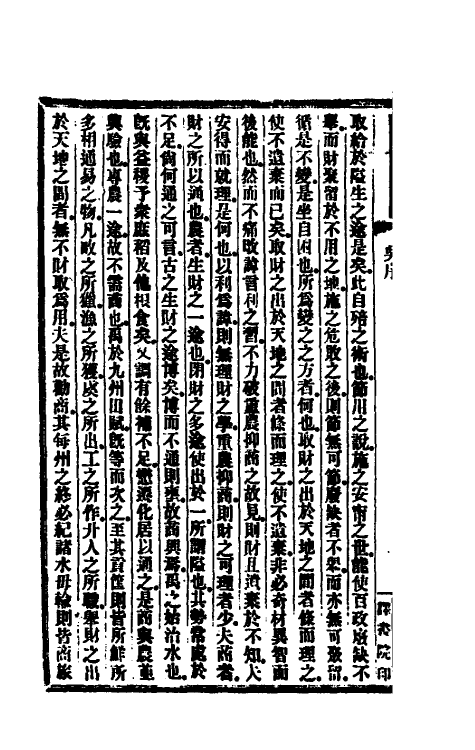 取給於隘生之途是矣此自殆之術也節用之說施之安甯之世能使百政廢缺不
舉而財聚留於不用之地施之危敗之後則節無可節廢缺者不舉而亦無可聚留
循是不變是坐自困也所爲變之之方者何也取財之出於天地之間者條而理之
使不遺棄而已矣取財之出於天地之間者條而理之使不遺棄非必奇材異智而
後能也然而不痛改諱言利之習不力破重農抑商之故見則財且遺棄於不知夫
安得而就理是何也以利爲諱則無理財之學重農抑商則財之可理者少夫商者
財之所以通也農者生財之一途也閉財之多途使出於一所謂隘也其勢常處於
不足尚何通之可言古之生財之途博矣博而不通則壅故商興焉禹之始治水也
旣與益稷予衆庶稻及他根食矣又調有餘補不足懋遷化居以通之是商與農並
興驗也專農一途故不需商也禹於九州田賦旣等而次之至其貢篚則皆所鮮所
多相通易之物凡畋之所獵漁之所獲虞之所出工之所作丱人之所職舉財之出
於天地之間者無不財取爲用夫是故勸商其每州之終必紀諸水毋輸則皆商旅
譯書院印